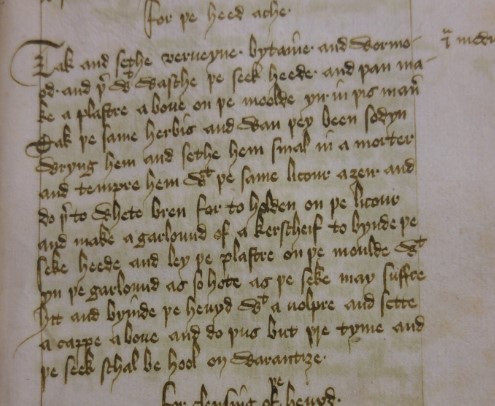 For þe heed ache·
Tak and sethe verueyne· bytaine and wormo-
od· and þr wt wasche þe seek heede· and þan ma-
ke a plastre a boue on þe moolde yn in þis man
Tak þe same herbis and wan þey been sodyn
wryng hem and sethe hem smal in a morter
and tempre hem wt þe same licour aȝen and
do þrto whete bren for to holden on þe licour
and make a garlound of a kerscheif to bynde þe
seke heede and ley þe plastre on þe moulde wt
yn þe garlound as so hote as þe seke may suffre
ytt and bynde þe heuyd wt a volpre and sette
a cappe a boue and do þus but þre tyme and
þe seek schal be hool on warantize·
for clensing of þe heuyd·